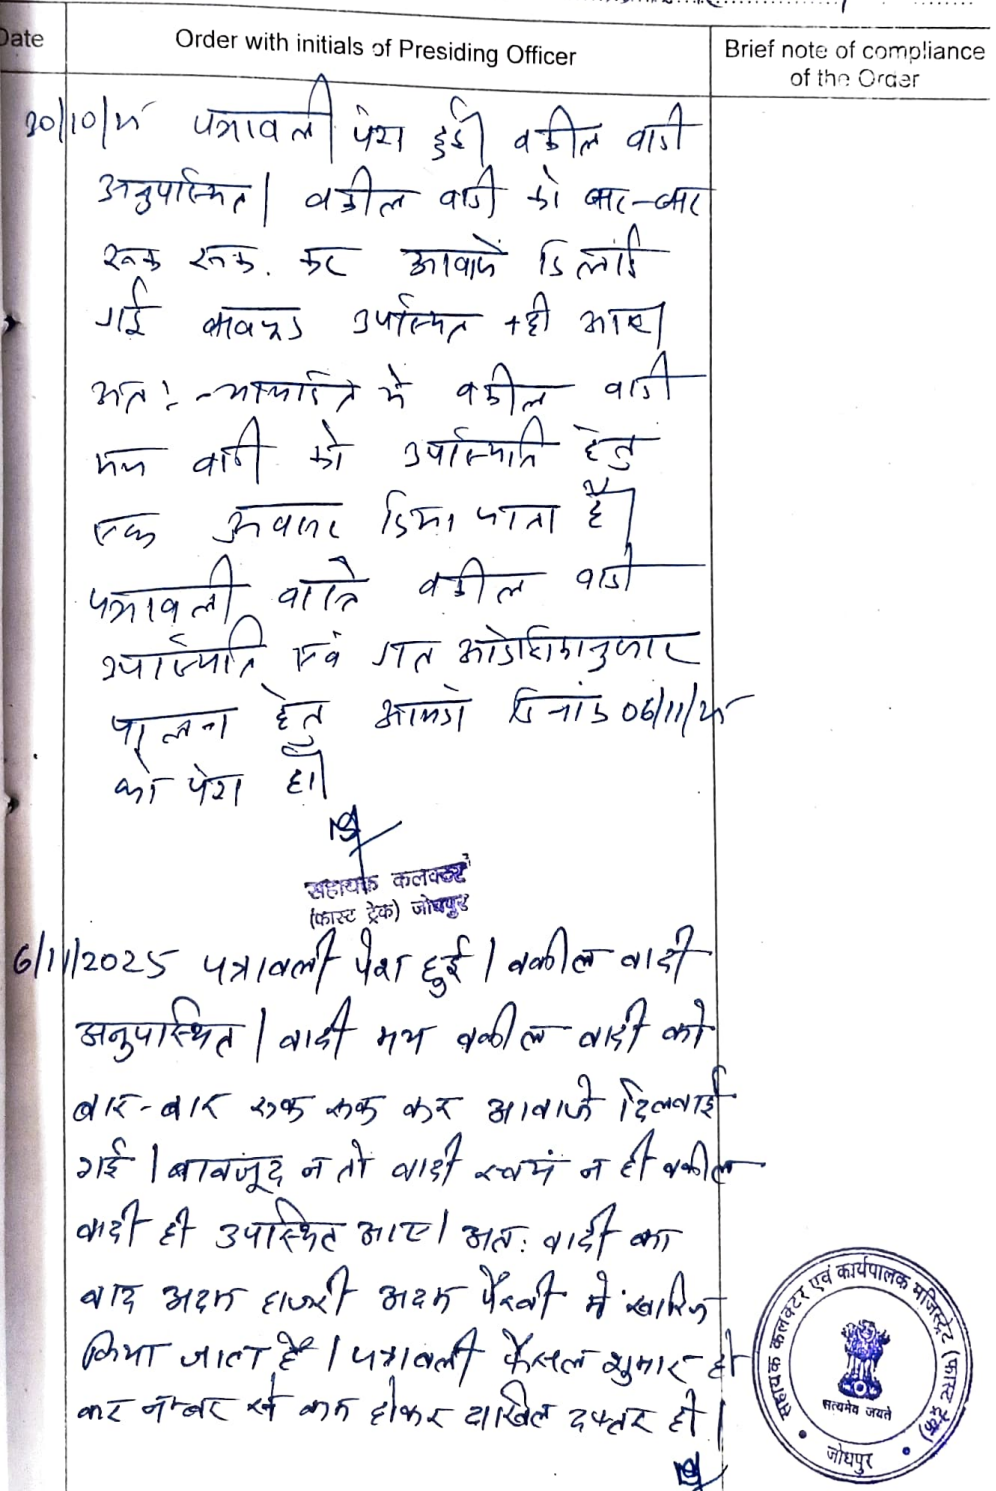 Date
Order with initials of Presiding Officer
Brief note of compliance
of the Order
पत्रावली पेश हुई। वकील वादी
अनुपस्थित। वकील वादी को बार-बार
रूक रूक. कर आवाजें दिलाई
गई बावजूद उपस्थित नही आए।
अतः न्यायहित में वकील वादी
मय वादी को उपस्थिति हेतु
एक अवसर दिया जाता है।
पत्रावली वास्ते वकील वादी
उपस्थिति एवं गत आदेशिकानुसार
पालना हेतु आगामी दिनांक 06/11/25
को पेश हो।
सहायक कलक्टर
(फास्ट ट्रेक) जोधपुर
6/11/2025 पत्रावली पेश हुई। वकील वादी
अनुपस्थित। वादी मय वकील वादी को
बार-बार रूक रूक कर आवाजे दिलवाई
गई। बावजूद न तो वादी स्वयं न ही वकील
वादी ही उपस्थित आए। अतः वादी का
वाद अदम हाजरी अदम पैरवी में खारिज
किया जाता है। पत्रावली फैसल शुमार हो
कर नम्बर से कम होकर दाखिल दफ्तर हो।
सहायक कलक्टर एवं कार्यपालक मजिस्ट्रेट (फास्ट ट्रेक)
सत्यमेव जयते
जोधपुर